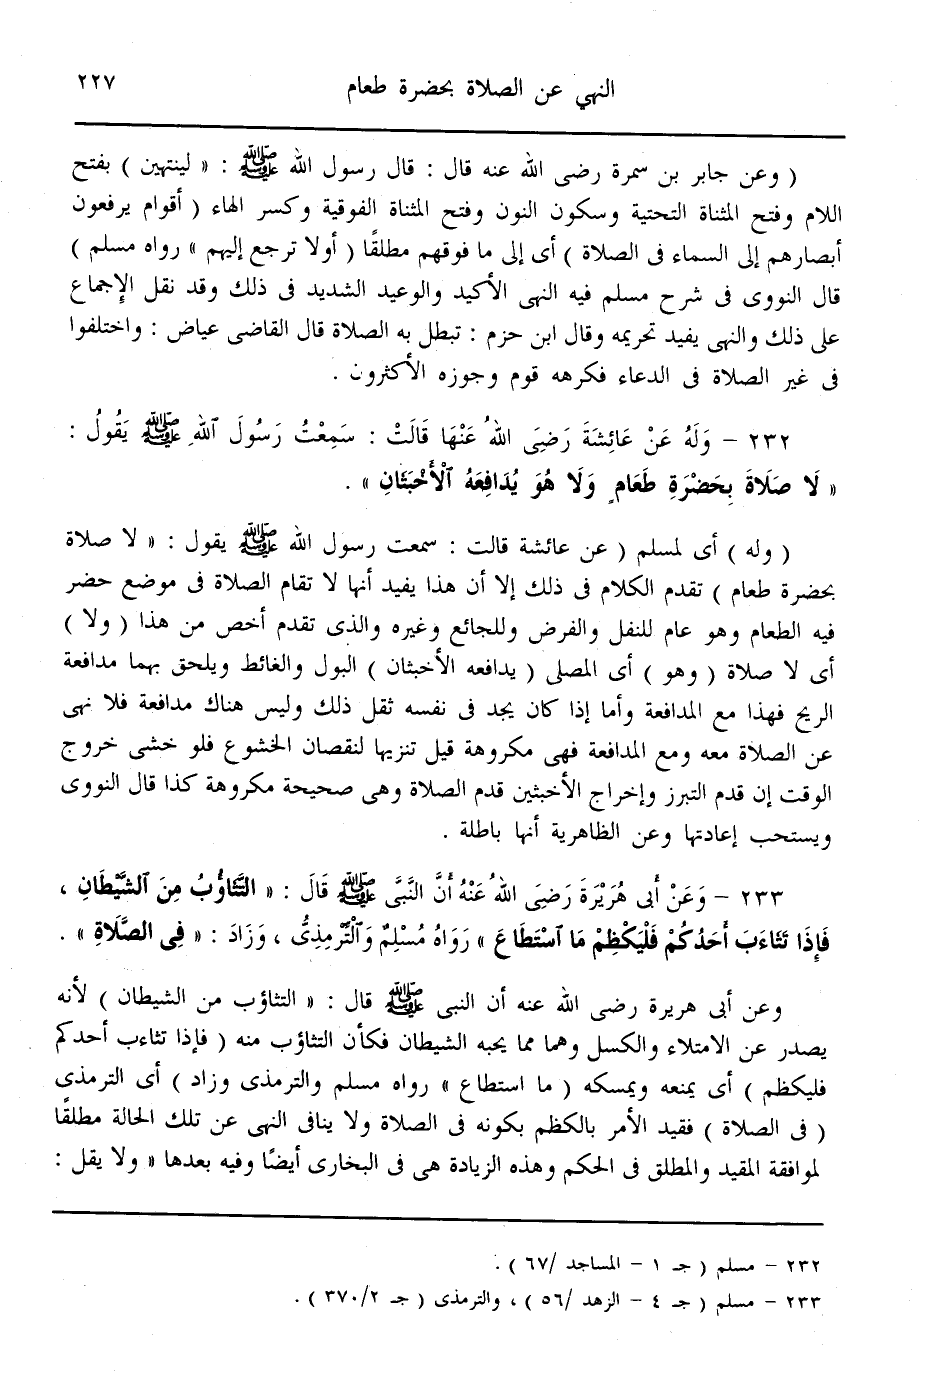 النهي عن الصلاة بحضرة طعام
٢٢٧
( وعن جابر بن سمرة رضى الله عنه قال : قال رسول الله ﷺ : « لينتهين ) بفتح
اللام وفتح المثناة التحتية وسكون النون وفتح المثناة الفوقية وكسر الهاء ( أقوام يرفعون
أبصارهم إلى السماء فى الصلاة ) أى إلى ما فوقهم مطلقًا ( أولا ترجع إليهم » رواه مسلم )
قال النووى فى شرح مسلم فيه النهى الأكيد والوعيد الشديد فى ذلك وقد نقل الإجماع
على ذلك والنهى يفيد تحريمه وقال ابن حزم : تبطل به الصلاة قال القاضى عياض : واختلفوا
فى غير الصلاة فى الدعاء فكرهه قوم وجوزه الأكثرون .
٢٣٢ – وَلَهُ عَنْ عَائِشَةَ رَضِيَ اللهُ عَنْهَا قَالَتْ : سَمِعْتُ رَسُولَ ٱللهِ ﷺ يَقُولُ :
« لَا صَلَاةَ بِحَضْرَةِ طَعَامٍ وَلَا هُوَ يُدَافِعَهُ ٱلْأَخْبَثَانِ » .
( وله ) أى لمسلم ( عن عائشة قالت : سمعت رسول الله ﷺ يقول : « لا صلاة
بحضرة طعام ) تقدم الكلام فى ذلك إلا أن هذا يفيد أنها لا تقام الصلاة فى موضع حضر
فيه الطعام وهو عام للنفل والفرض وللجائع وغيره والذى تقدم أخص من هذا ( ولا )
أى لا صلاة ( وهو ) أى المصلى ( يدافعه الأخبثان ) البول والغائط ويلحق بهما مدافعة
الريح فهذا مع المدافعة وأما إذا كان يجد فى نفسه ثقل ذلك وليس هناك مدافعة فلا نهى
عن الصلاة معه ومع المدافعة فهى مكروهة قيل تنزيها لنقصان الخشوع فلو خشى خروج
الوقت إن قدم التبرز وإخراج الأخبثين قدم الصلاة وهى صحيحة مكروهة كذا قال النووى
ويستحب إعادتها وعن الظاهرية أنها باطلة .
٢٣٣ – وَعَنْ أَبِى هُرَيْرَةَ رَضِىَ اللهُ عَنْهُ أَنَّ النَّبِىَّ ﷺ قَالَ : « التَّثَاؤُبُ مِنَ ٱلشَّيْطَانِ ،
فَإِذَا تَثَاءَبَ أَحَدُكُمْ فَلْيَكْظِمْ مَا ٱسْتَطَاعَ » رَوَاهُ مُسْلِمٌ وَٱلتِّرْمِذِىُّ ، وَزَادَ : « فِى الصَّلَاةِ » .
وعن أبى هريرة رضى الله عنه أن النبى ﷺ قال : « التثاؤب من الشيطان ) لأنه
يصدر عن الامتلاء والكسل وهما مما يحبه الشيطان فكأن التثاؤب منه ( فإذا تثاءب أحدكم
فليكظم ) أى يمنعه ويمسكه ( ما استطاع » رواه مسلم والترمذى وزاد ) أى الترمذى
( فى الصلاة ) فقيد الأمر بالكظم بكونه فى الصلاة ولا ينافى النهى عن تلك الحالة مطلقًا
لموافقة المقيد والمطلق فى الحكم وهذه الزيادة هى فى البخارى أيضًا وفيه بعدها « ولا يقل :
٢٣٢ – مسلم ( جـ ١ – المساجد /٦٧ ) .
٢٣٣ – مسلم ( جـ ٤ – الزهد /٥٦ ) ، والترمذى ( جـ ٣٧٠/٢ ) .